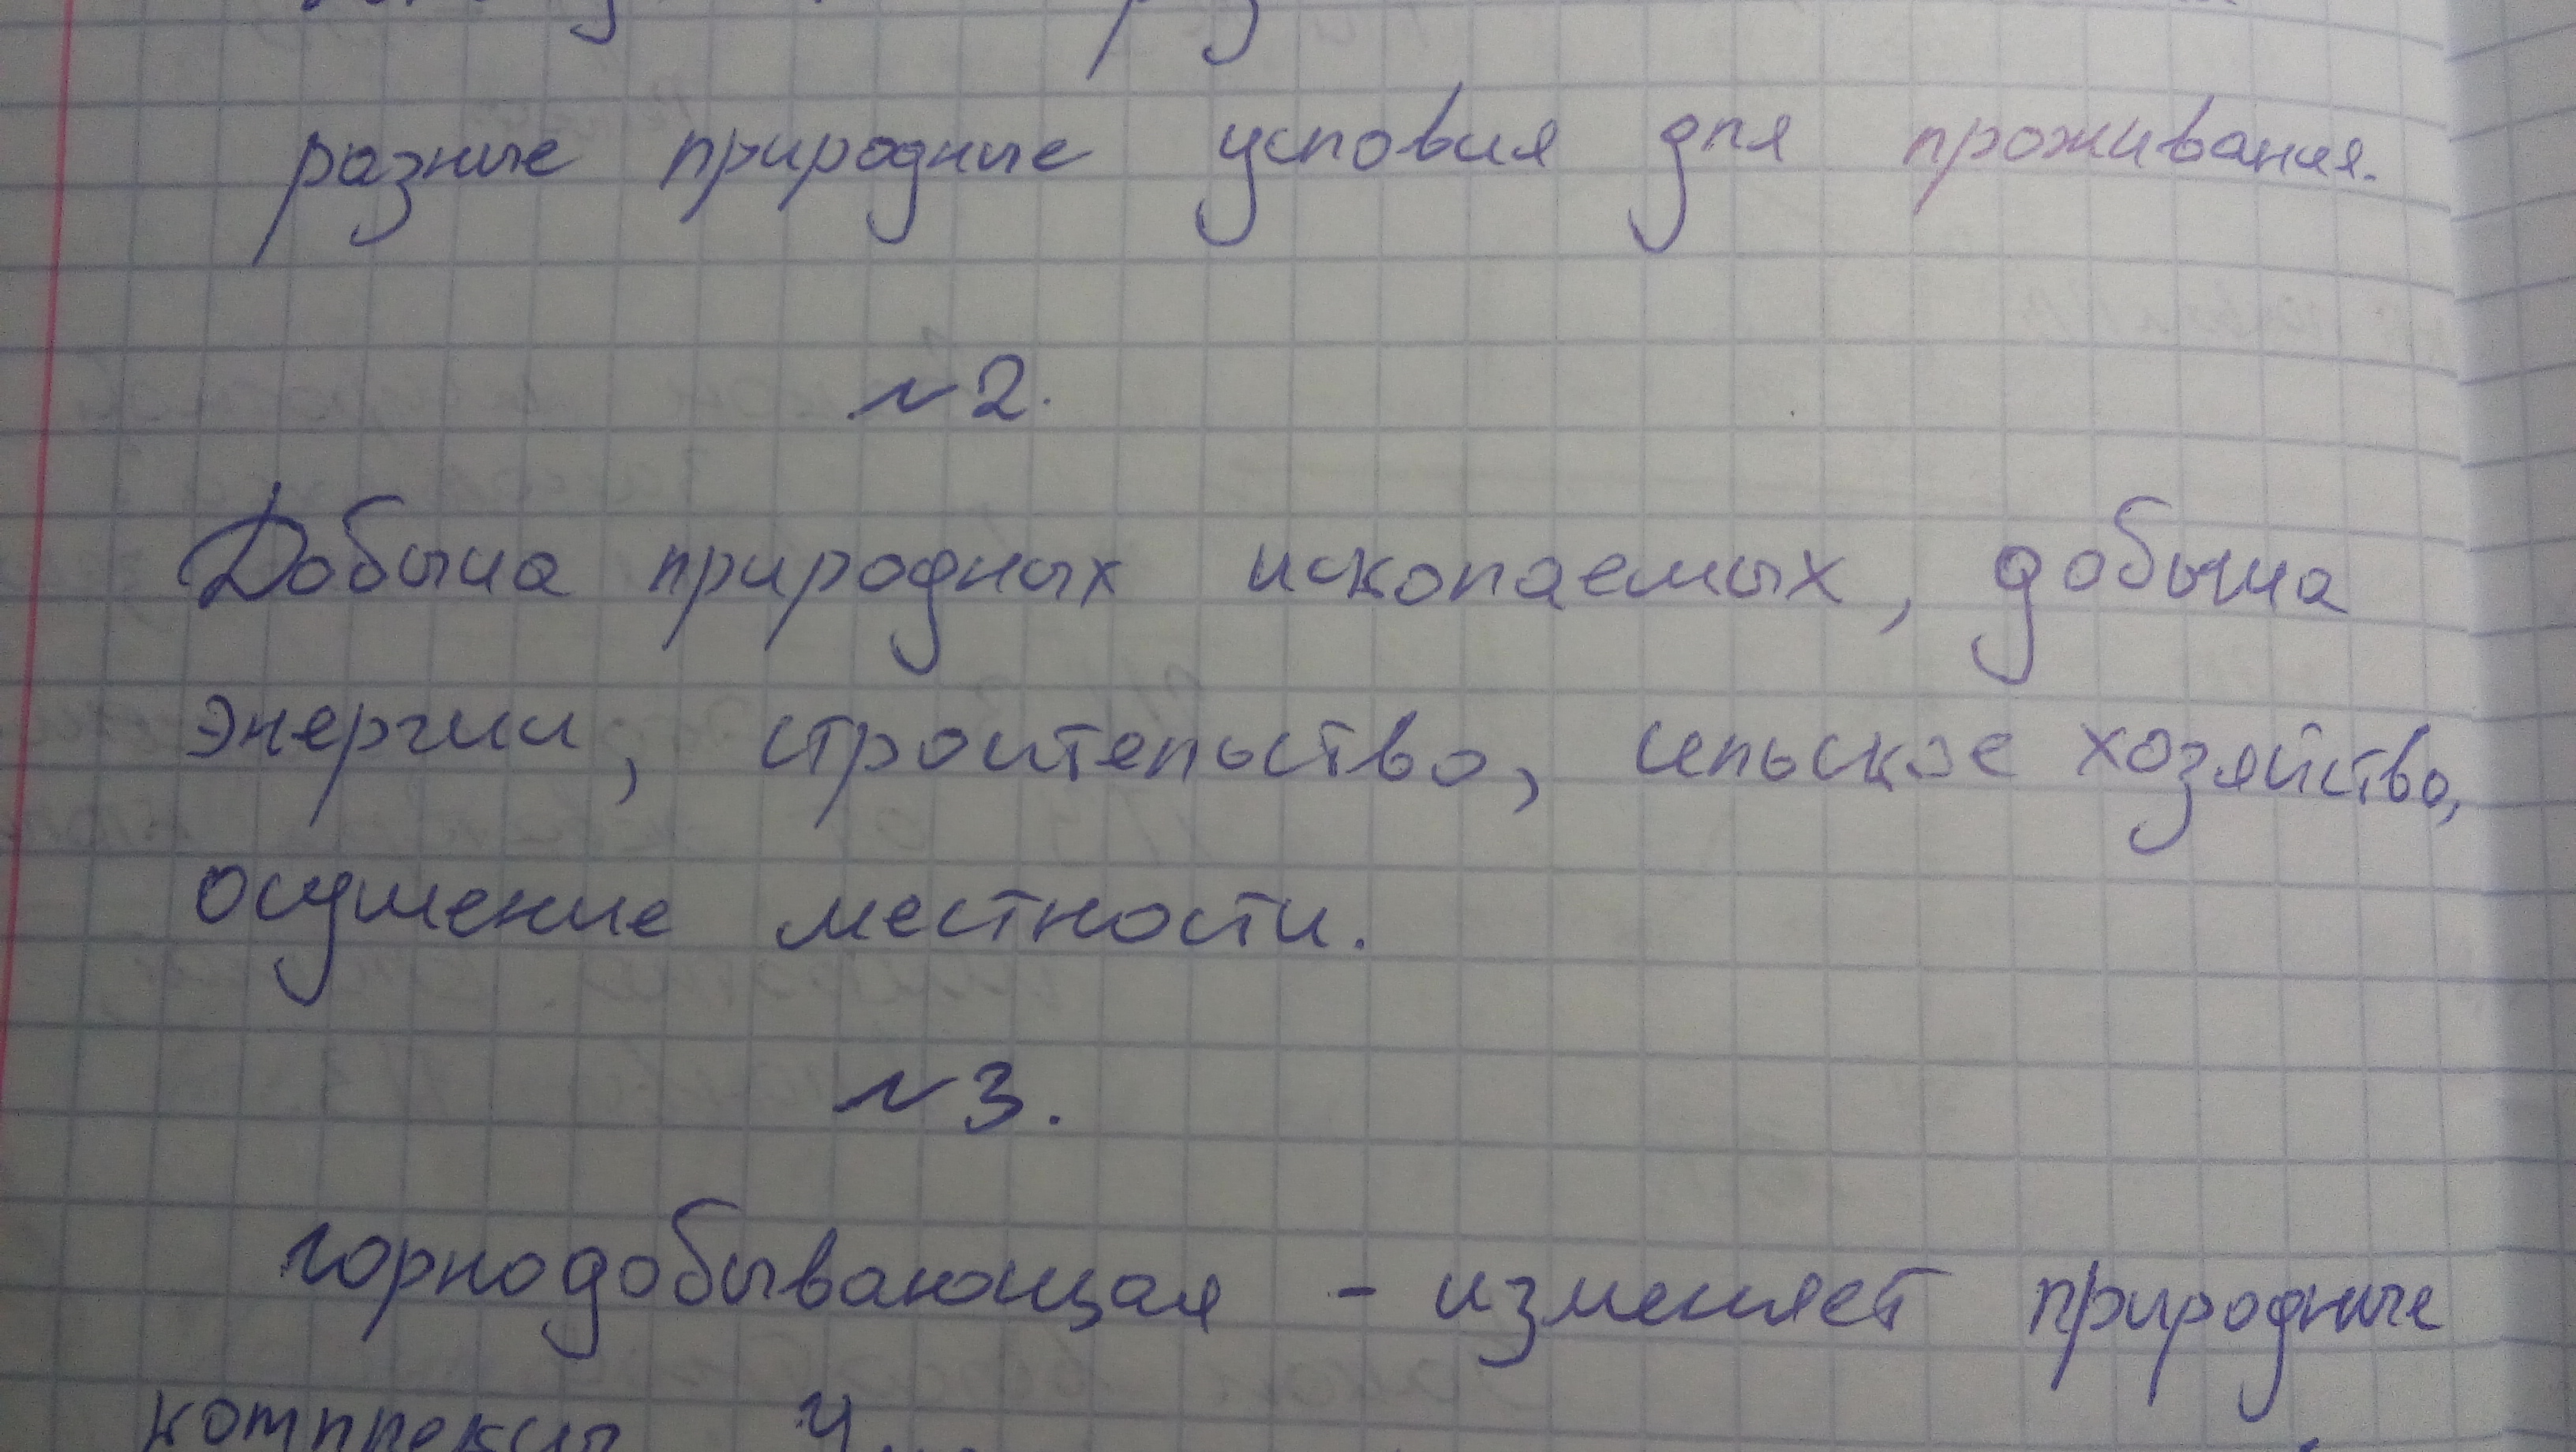 разные природные условия для проживания.
№2.
Добыча природных ископаемых, добыча
энергии, строительство, сельское хозяйство,
осушение местности.
№3.
горнодобывающая - изменяет природные
комплексы